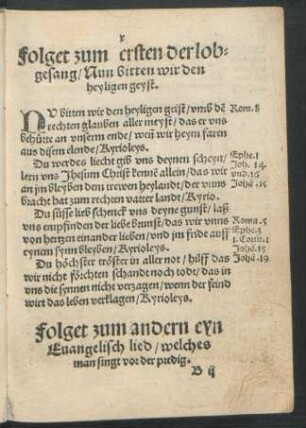 x
Folget zum ersten der lob-
gesang/ Nun bitten wir den
heyligen geyst.
NV bitten wir den heyligen geist/ vmb dē Rom. 8
rechten glauben aller meyst/ das er vns
behütte an vnserm ende/ weñ wir heym faren
aus disem elende/ Kyrioleys.
Du werdes liecht gib vns deynen scheyn/ Ephe. 1
lern vns Jhesum Christ kenne allein/ das wir Joh. 14.
an jm bleyben dem trewen heylandt/ der vnns vnd. 16
bracht hat zum rechten vatter landt/ Kyrio. Johā. 15
Du süsse lieb schenck vns deyne gunst/ laß
vns empfinden der liebe brunst/ das wir vnns Roma. 5
von hertzen einander lieben/ vnd jm fride auff Ephe. 3
eynem synn bleyben/ Kyrioleys. 1. Corin. 1
Johā. 15
Du höchster tröster in aller not/ hilff das Johā. 19
wir nicht förchten schandt noch todt/ das in
vns die synnen nicht verzagen/ wenn der feind
wirt das leben verklagen/ Kyrioleys.
Folget zum andern eyn
Euangelisch lied/ welches
man singt vor der predig.
B ij